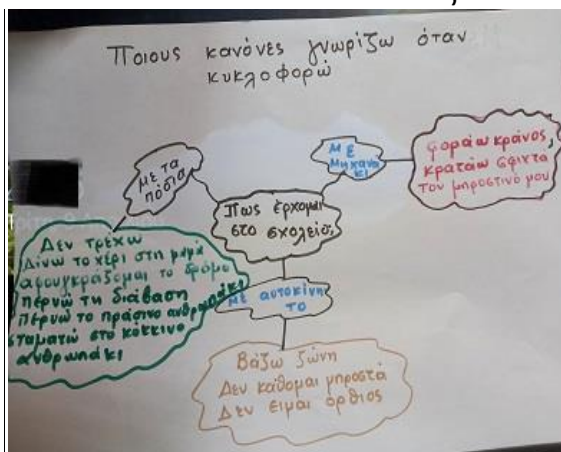 Ποιους κανόνες γνωρίζω όταν
κυκλοφορώ
με τα
πόδια
ΜΕ
μηχανα
κι
φοράω κράνος,
κρατάω σφιχτά
τον μπροστινό μου
Πως έρχομαι
στο σχολείο;
Δεν τρέχω
Δίνω το χέρι στη μαμά
αφουγκράζομαι το δρόμο
περνώ τη διάβαση
περνώ το πράσινο ανθρωπάκι
σταματώ στο κόκκινο
ανθρωπάκι
με αυτοκίνη
το
Βάζω ζώνη
Δεν κάθομαι μπροστά
Δεν ειμαι όρθιος